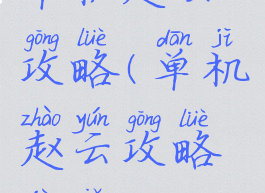 gōng lüè dān jī
攻略(单机
zhào yún gōng lüè
赵云攻略